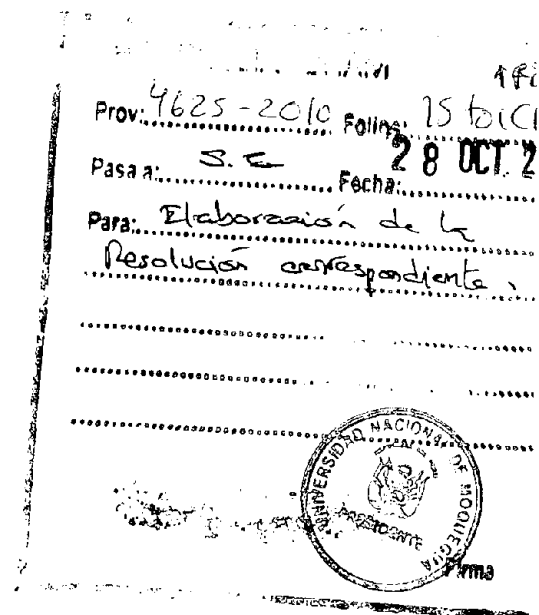 Prov: 4625-2010 Folios: 15
Pasa a: S.G. Fecha: 28 OCT. 2
Para: Elaboración de la
Resolución correspondiente.
UNIVERSIDAD NACIONAL DE MOQUEGUA
PRESIDENTE
Firma